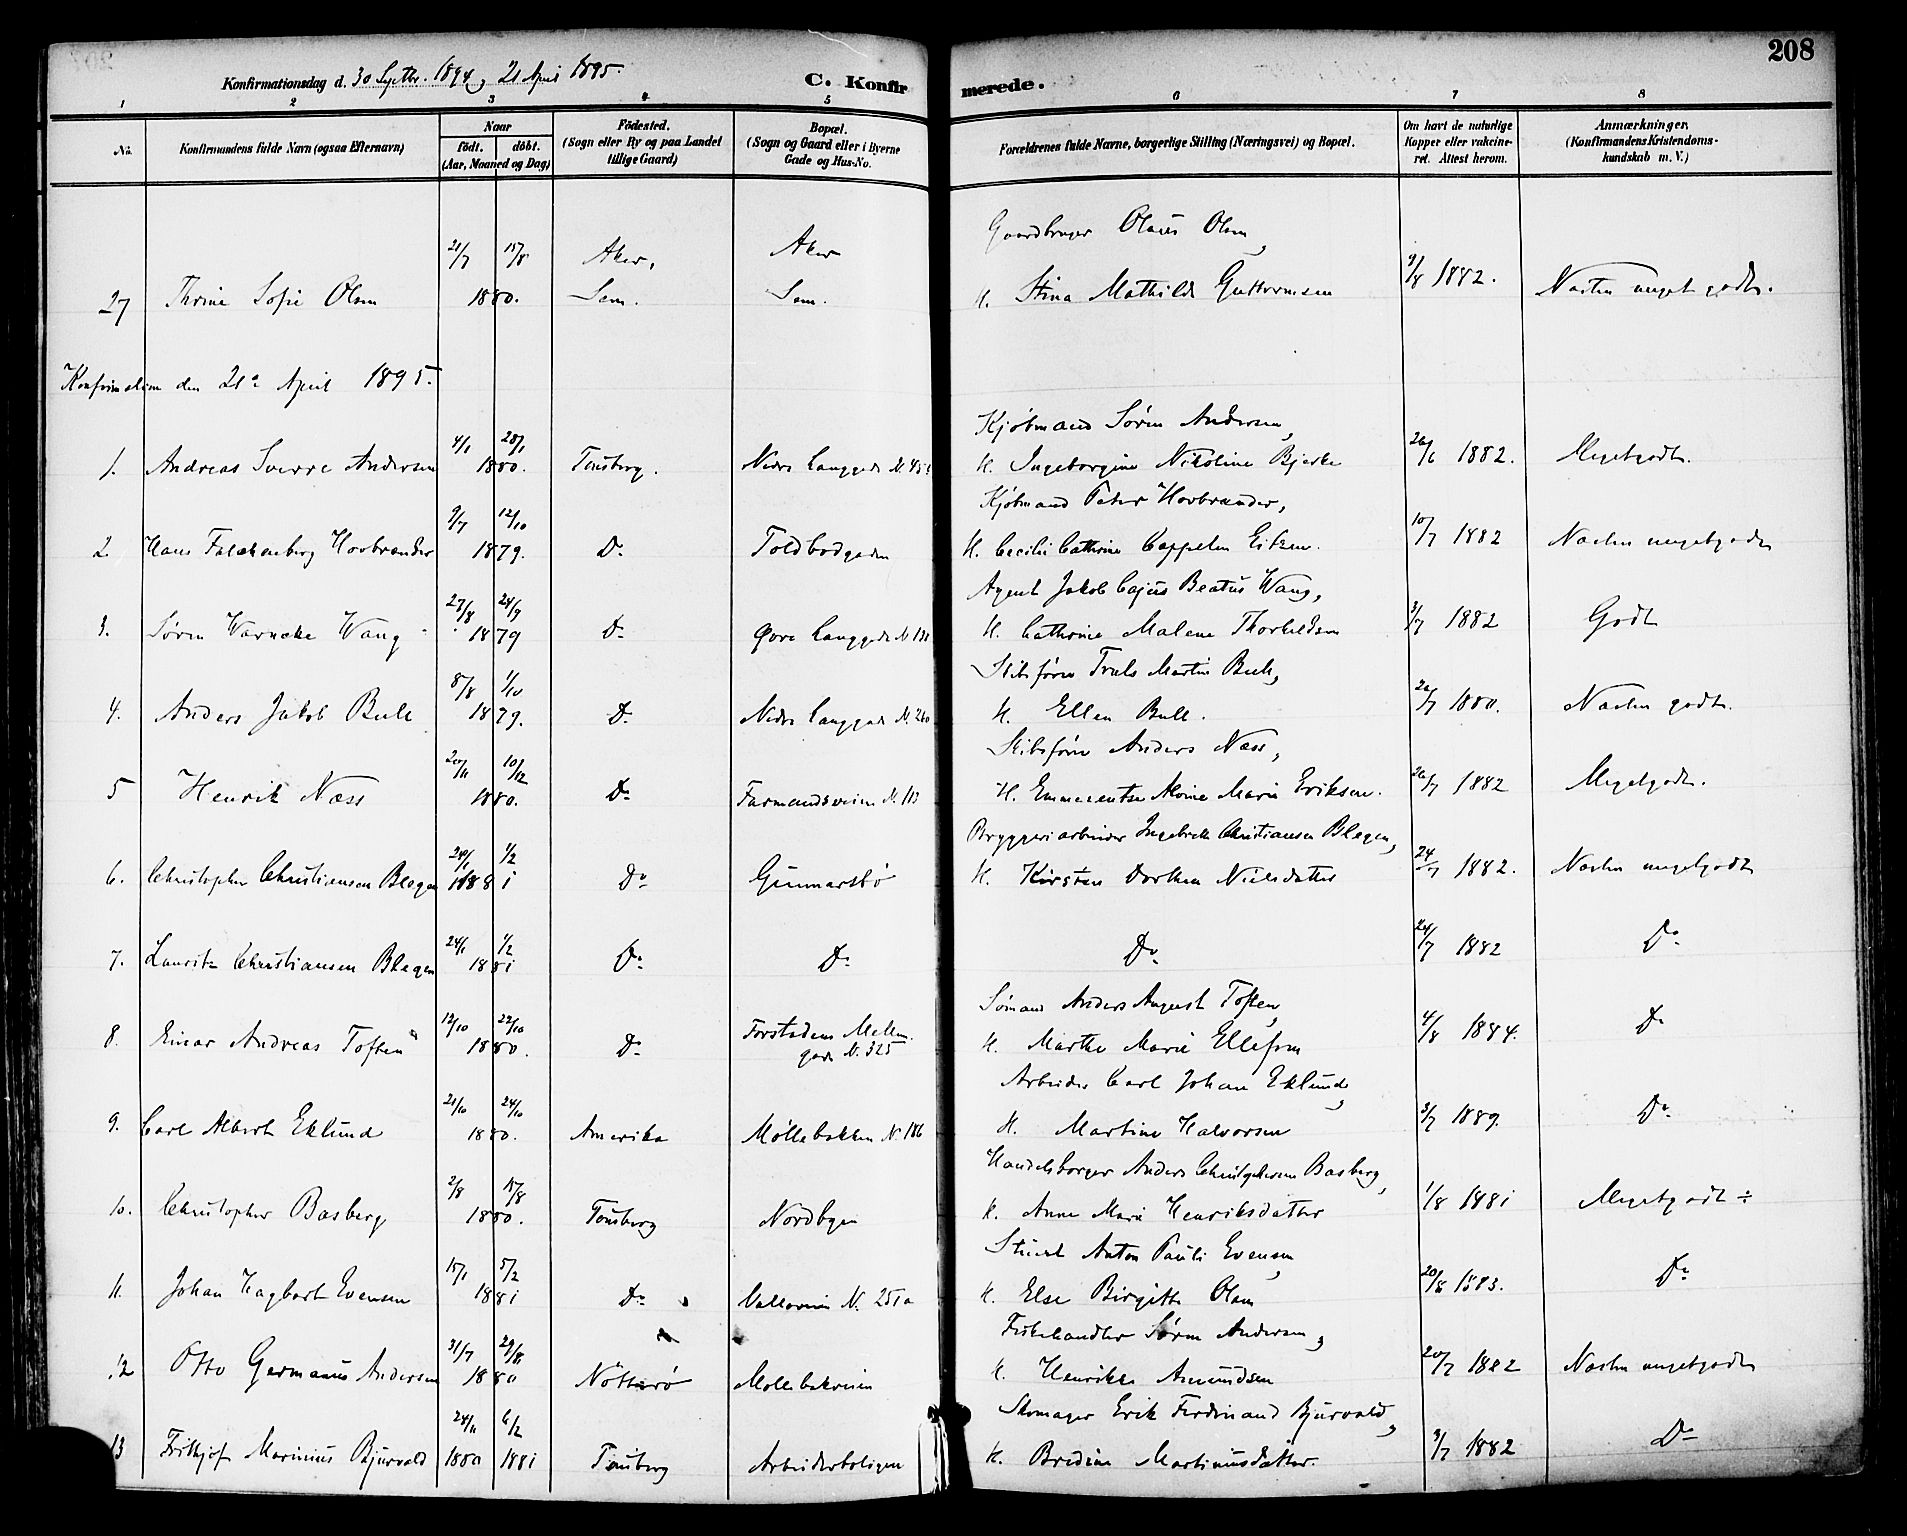 208
Konfirmationsdag d. 30 Septbr. 1894, 21 April 1895.
C. Konfir merede.
1 2 3 4 5 6 7 8
No. Konfirmandens fulde Navn (ogsaa Efternavn) Naar födt. döbt. (Aar, Moaned og Dag) Födested. (Sogn eller By og paa Landet tillige Gaard) Bopæl. (Sogn og Gaard eller i Byerne Gade og Hus-No. Forældrenes fulde Navne, borgerlige Stilling (Næringsvei) og Bopæl. Om havt de naturlige Kopper eller vakcineret. Attest herom. Anmærkninger, (Konfirmandens Kristendomskundskab m. V.)
21/7 15/8 Aker, Aker Gaardbruger Olaus Olsen,
27 Thrine Sofie Olsen 1880. Sem. Sem. H. Stina Mathilde Guttormsen 9/8 1882. Næsten meget godt.
Konfirmation den 21de April 1895.
4/1 28/1 Kjöbmand Sören Andersen,
1. Andreas Sverre Andersen 1880. Tönsberg. Nedre Langgade N. H. Ingeborgine Nikoline Bjerke 26/6 1882. Meget godt.
9/7 12/10 Kjöbmand Peter Hovbrender,
2. Hans Falckenberg Hovbrender 1879. Do Toldbodgaden H. Cecilie Cathrine Cappelen Eitzen. 10/7 1882 Næsten meget godt
27/8 24/9 Agent Jakob Cajus Beatus Wang,
3. Sören Warncke Wang 1879 Do Övre Langgade N. H. Cathrine Malene Thorkildsen 3/7 1882 Godt
8/8 1/10 Skibsförer Truls Martin Bull,
4. Anders Jakob Bull 1879. Do Nedre Langgade N. 260 H. Ellen Bull. 1880. Næsten godt.
20/11 10/12 Skibsförer Anders Næss,
5 Henrik Næss 1880. Do Farmandsveien N. 113 H. Emmerentse Alvine Marie Eriksen. 26/7 1882 Meget godt.
24/1 1/2 Bryggeriarbeider Ingebrett Christiansen Blegen,
6. Christopher Christiansen Blegen 1881 Do Gunnarsbö H. Kirsten Dorthea Nielsdatter 24/7 1882. Næsten meget godt
24/1 1/2
7. Lauritz Christiansen Blegen 1881 Do Do Do 24/7 1882 Do
12/10 22/10 Sömand Anders August Toften,
8. Einar Andreas Toften 1880. Do Forstaden Mellemgade N. 325 H. Marthe Marie Ellefsen 4/8 1884. Do
21/10 24/10 Arbeider Carl Johan Eklund,
9. Carl Albert Eklund 1880. Amerika Möllebakken N. 186 H. Martine Halvorsen 3/7 1889. Do
2/8 15/8 Handelsborger Anders Christophersen Basberg,
10. Christopher Basberg 1880. Tönsberg Nordbyen H. Anne Marie Henriksdatter 1/8 1881 Meget godt ÷
15/1 5/2 Stuert Anton Pauli Evensen,
11. Johan Hagbart Evensen 1881 Do Valloveien N. 251a H. Else Birgitte Olsen 20/8 1883. Do
31/7 29/8 Fiskehandler Sören Andersen,
12 Otto Germanus Andersen 1880 Nötterö Möllebakveien H. Henrikke Amundsen 20/7 1882 Næsten meget godt
24/11 6/2 Skomager Erik Ferdinand Bjurvald,
13 Frithjof Marinius Bjurvald 1880 1881 Tönsberg Arbeiderboligen H. Bredine Martinusdatter. 3/7 1882 Do